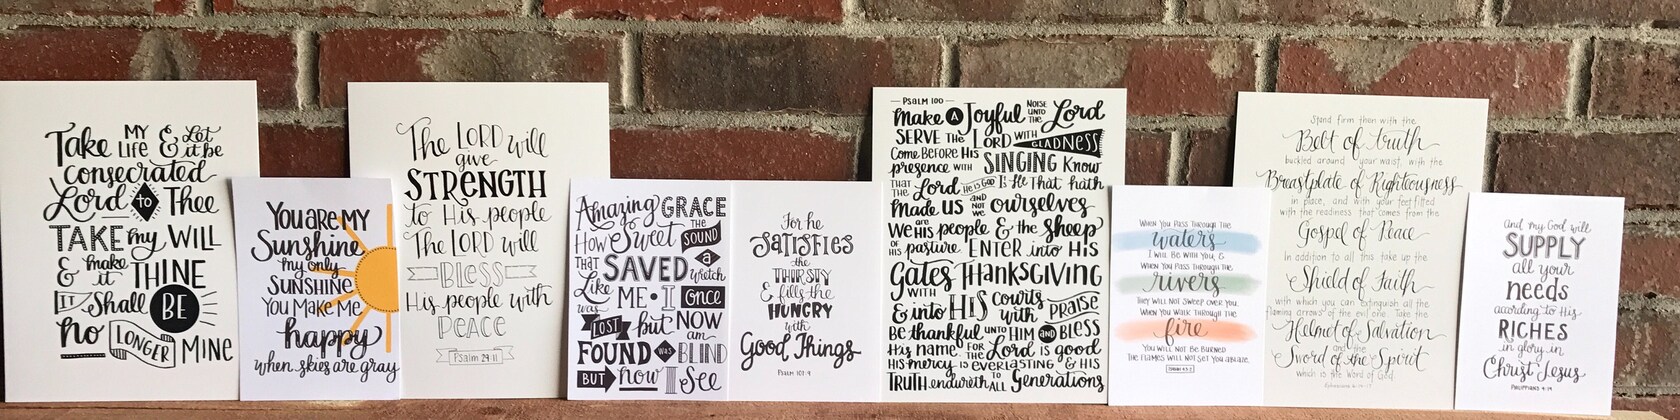 Take MY LIFE & Let it be
consecrated
Lord to Thee
TAKE my WILL
& make it THINE
It Shall BE
no LONGER MINE
You are MY
Sunshine
my only
SUNSHINE
You Make Me
happy
when skies are gray
The LORD will
give
STRENGTH
to His people
The LORD will
BLESS
His people with
PEACE
Psalm 29:11
Amazing GRACE
How Sweet THE SOUND
THAT SAVED a wretch
Like ME • I once
was LOST but NOW am
FOUND was BLIND
BUT now I See
For he
SATISFIES
the
THIRSTY
& fills the
HUNGRY
with
Good Things
PSALM 107:9
PSALM 100
Make A Joyful NOISE UNTO THE Lord
SERVE THE LORD WITH GLADNESS
Come BEFORE His
presence WITH SINGING Know
THAT THE Lord He is God It Is He THAT hath
made US AND NOT WE ourselves
WE ARE HIS people & the sheep
OF HIS pasture. ENTER into HIS
Gates WITH THANKSGIVING
& into HIS courts with PRAISE
BE thankful UNTO HIM AND BLESS
His name. FOR THE Lord is good
HIS mercy IS EVERLASTING & HIS
TRUTH endureth TO ALL Generations
WHEN YOU PASS THROUGH THE
waters
I WILL BE WITH YOU, &
WHEN YOU PASS THROUGH THE
rivers
THEY WILL NOT SWEEP OVER YOU.
WHEN YOU WALK THROUGH THE
fire
YOU WILL NOT BE BURNED
THE FLAMES WILL NOT SET YOU ABLAZE.
ISAIAH 43:2
Stand firm then with the
Belt of truth
buckled around your waist, with the
Breastplate of Righteousness
in place, and with your feet fitted
with the readiness that comes from the
Gospel of Peace
In addition to all this take up the
Shield of Faith
with which you can extinguish all the
flaming arrows of the evil one. Take the
Helmet of Salvation
and the
Sword of the Spirit
which is the Word of God.
Ephesians 6:14-17
And my God will
SUPPLY
all your
needs
according to His
RICHES
in glory in
Christ Jesus
PHILIPPIANS 4:19